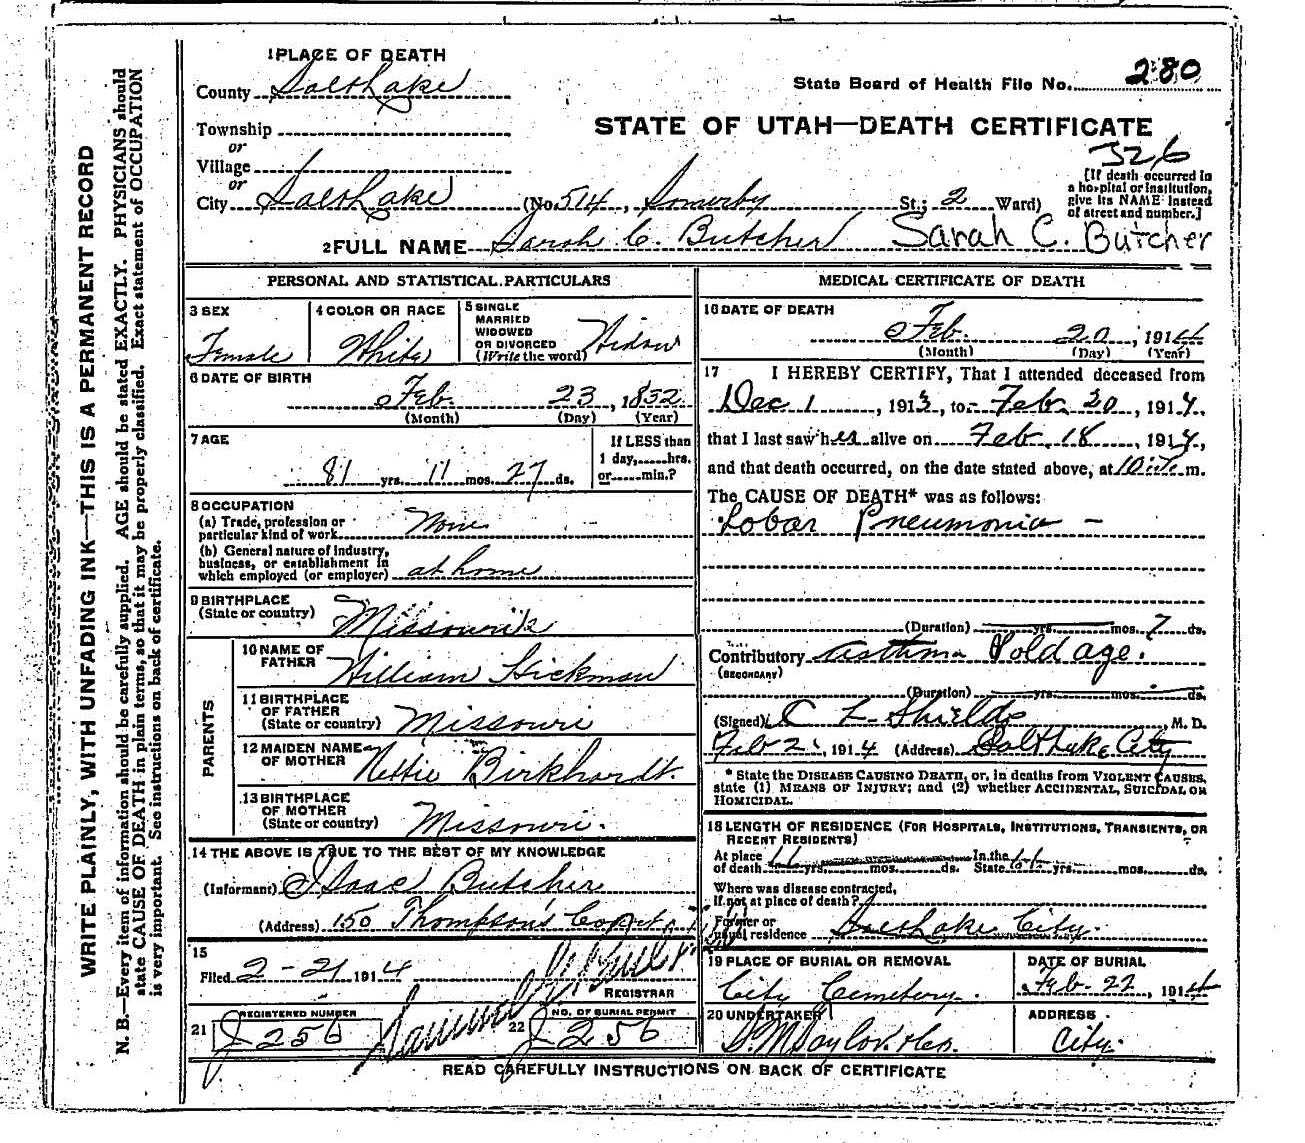 WRITE PLAINLY, WITH UNFADING INK—THIS IS A PERMANENT RECORD
N. B.—Every item of information should be carefully supplied. AGE should be stated EXACTLY. PHYSICIANS should
state CAUSE OF DEATH in plain terms, so that it may be properly classified. Exact statement of OCCUPATION
is very important. See instructions on back of certificate.
1 PLACE OF DEATH
County Salt Lake
State Board of Health File No. 280
Township
or
Village
or
STATE OF UTAH—DEATH CERTIFICATE
326
[If death occurred in
a hospital or institution,
give its NAME instead
of street and number.]
City Salt Lake (No. 514, St.; 2 Ward)
2 FULL NAME Sarah C. Butcher Sarah C. Butcher
PERSONAL AND STATISTICAL PARTICULARS
3 SEX
Female
4 COLOR OR RACE
White
5 SINGLE
MARRIED
WIDOWED
OR DIVORCED
(Write the word) Widow
6 DATE OF BIRTH
Feb. 23, 1832
(Month) (Day) (Year)
7 AGE
81 yrs. 11 mos. 27 ds.
If LESS than
1 day, hrs.
or min.?
8 OCCUPATION
(a) Trade, profession or
particular kind of work None
(b) General nature of industry,
business, or establishment in
which employed (or employer) at home
9 BIRTHPLACE
(State or country) Missouri
PARENTS
10 NAME OF
FATHER William Hickman
11 BIRTHPLACE
OF FATHER
(State or country) Missouri
12 MAIDEN NAME
OF MOTHER Nettie Birkhardt.
13 BIRTHPLACE
OF MOTHER
(State or country) Missouri.
14 THE ABOVE IS TRUE TO THE BEST OF MY KNOWLEDGE
(Informant) Isaac Butcher
(Address) 150 Thompson's Court
15
Filed 2-21 1914
REGISTRAR
21 REGISTERED NUMBER
J 256
22 NO. OF BURIAL PERMIT
J 256
MEDICAL CERTIFICATE OF DEATH
16 DATE OF DEATH
Feb. 20, 1914
(Month) (Day) (Year)
17 I HEREBY CERTIFY, That I attended deceased from
Dec 1, 1913, to Feb 20, 1914,
that I last saw her alive on Feb 18, 1914,
and that death occurred, on the date stated above, at m.
The CAUSE OF DEATH* was as follows:
Lobar Pneumonia —
(Duration) yrs. mos. 7 ds.
Contributory Asthma & old age.
(SECONDARY)
(Duration) yrs. mos. ds.
(Signed) C L Shields, M. D.
Feb 21, 1914 (Address) Salt Lake City
* State the DISEASE CAUSING DEATH, or, in deaths from VIOLENT CAUSES,
state (1) MEANS OF INJURY; and (2) whether ACCIDENTAL, SUICIDAL OR
HOMICIDAL.
18 LENGTH OF RESIDENCE (FOR HOSPITALS, INSTITUTIONS, TRANSIENTS, OR
RECENT RESIDENTS)
At place
of death yrs. mos. ds. In the
State yrs. mos. ds.
Where was disease contracted,
if not at place of death?
Former or
usual residence Salt Lake City.
19 PLACE OF BURIAL OR REMOVAL
City Cemetery.
DATE OF BURIAL
Feb. 22, 1914
20 UNDERTAKER
S. M. Taylor & Co.
ADDRESS
City.
READ CAREFULLY INSTRUCTIONS ON BACK OF CERTIFICATE